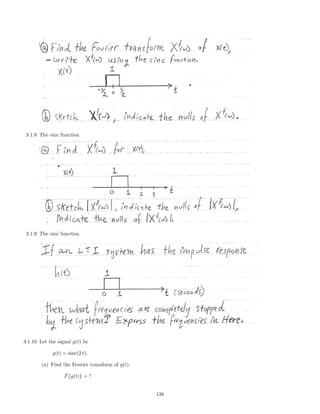 (a) Find the Fourier transform Xᶠ(ω) of x(t),
- write Xᶠ(ω) using the sinc function.
x(t) 1
-½ 0 ½ t
(b) sketch Xᶠ(ω), indicate the nulls of Xᶠ(ω).
3.1.8 The sinc function
(a) Find Xᶠ(ω) for x(t),
x(t) 1
0 1 2 3 t
(b) sketch |Xᶠ(ω)|, indicate the nulls of |Xᶠ(ω)|,
indicate the nulls of |Xᶠ(ω)|.
3.1.9 The sinc function
If an LTI system has the impulse response
h(t) 1
0 1 t (seconds)
then what frequencies are completely stopped
by the system? Express the frequencies in Hertz.
3.1.10 Let the signal g(t) be
g(t) = sinc(2 t).
(a) Find the Fourier transform of g(t).
F{g(t)} = ?
138